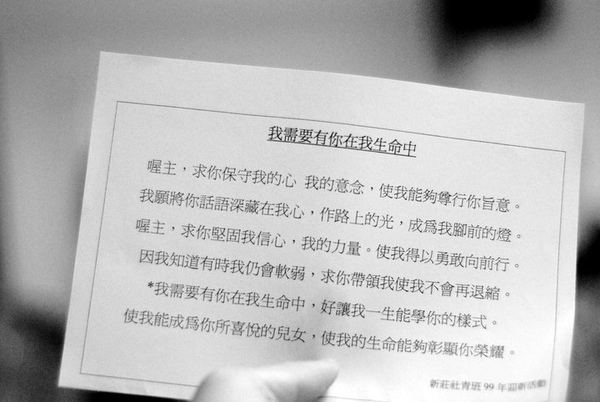 我需要有你在我生命中
喔主，求你保守我的心 我的意念，使我能夠尊行你旨意。
我願將你話語深藏在我心，作路上的光，成為我腳前的燈。
喔主，求你堅固我信心，我的力量。使我得以勇敢向前行。
因我知道有時我仍會軟弱，求你帶領我使我不會再退縮。
*我需要有你在我生命中，好讓我一生能學你的樣式。
使我能成為你所喜悅的兒女，使我的生命能夠彰顯你榮耀。
新莊社青班 99 年迎新活動